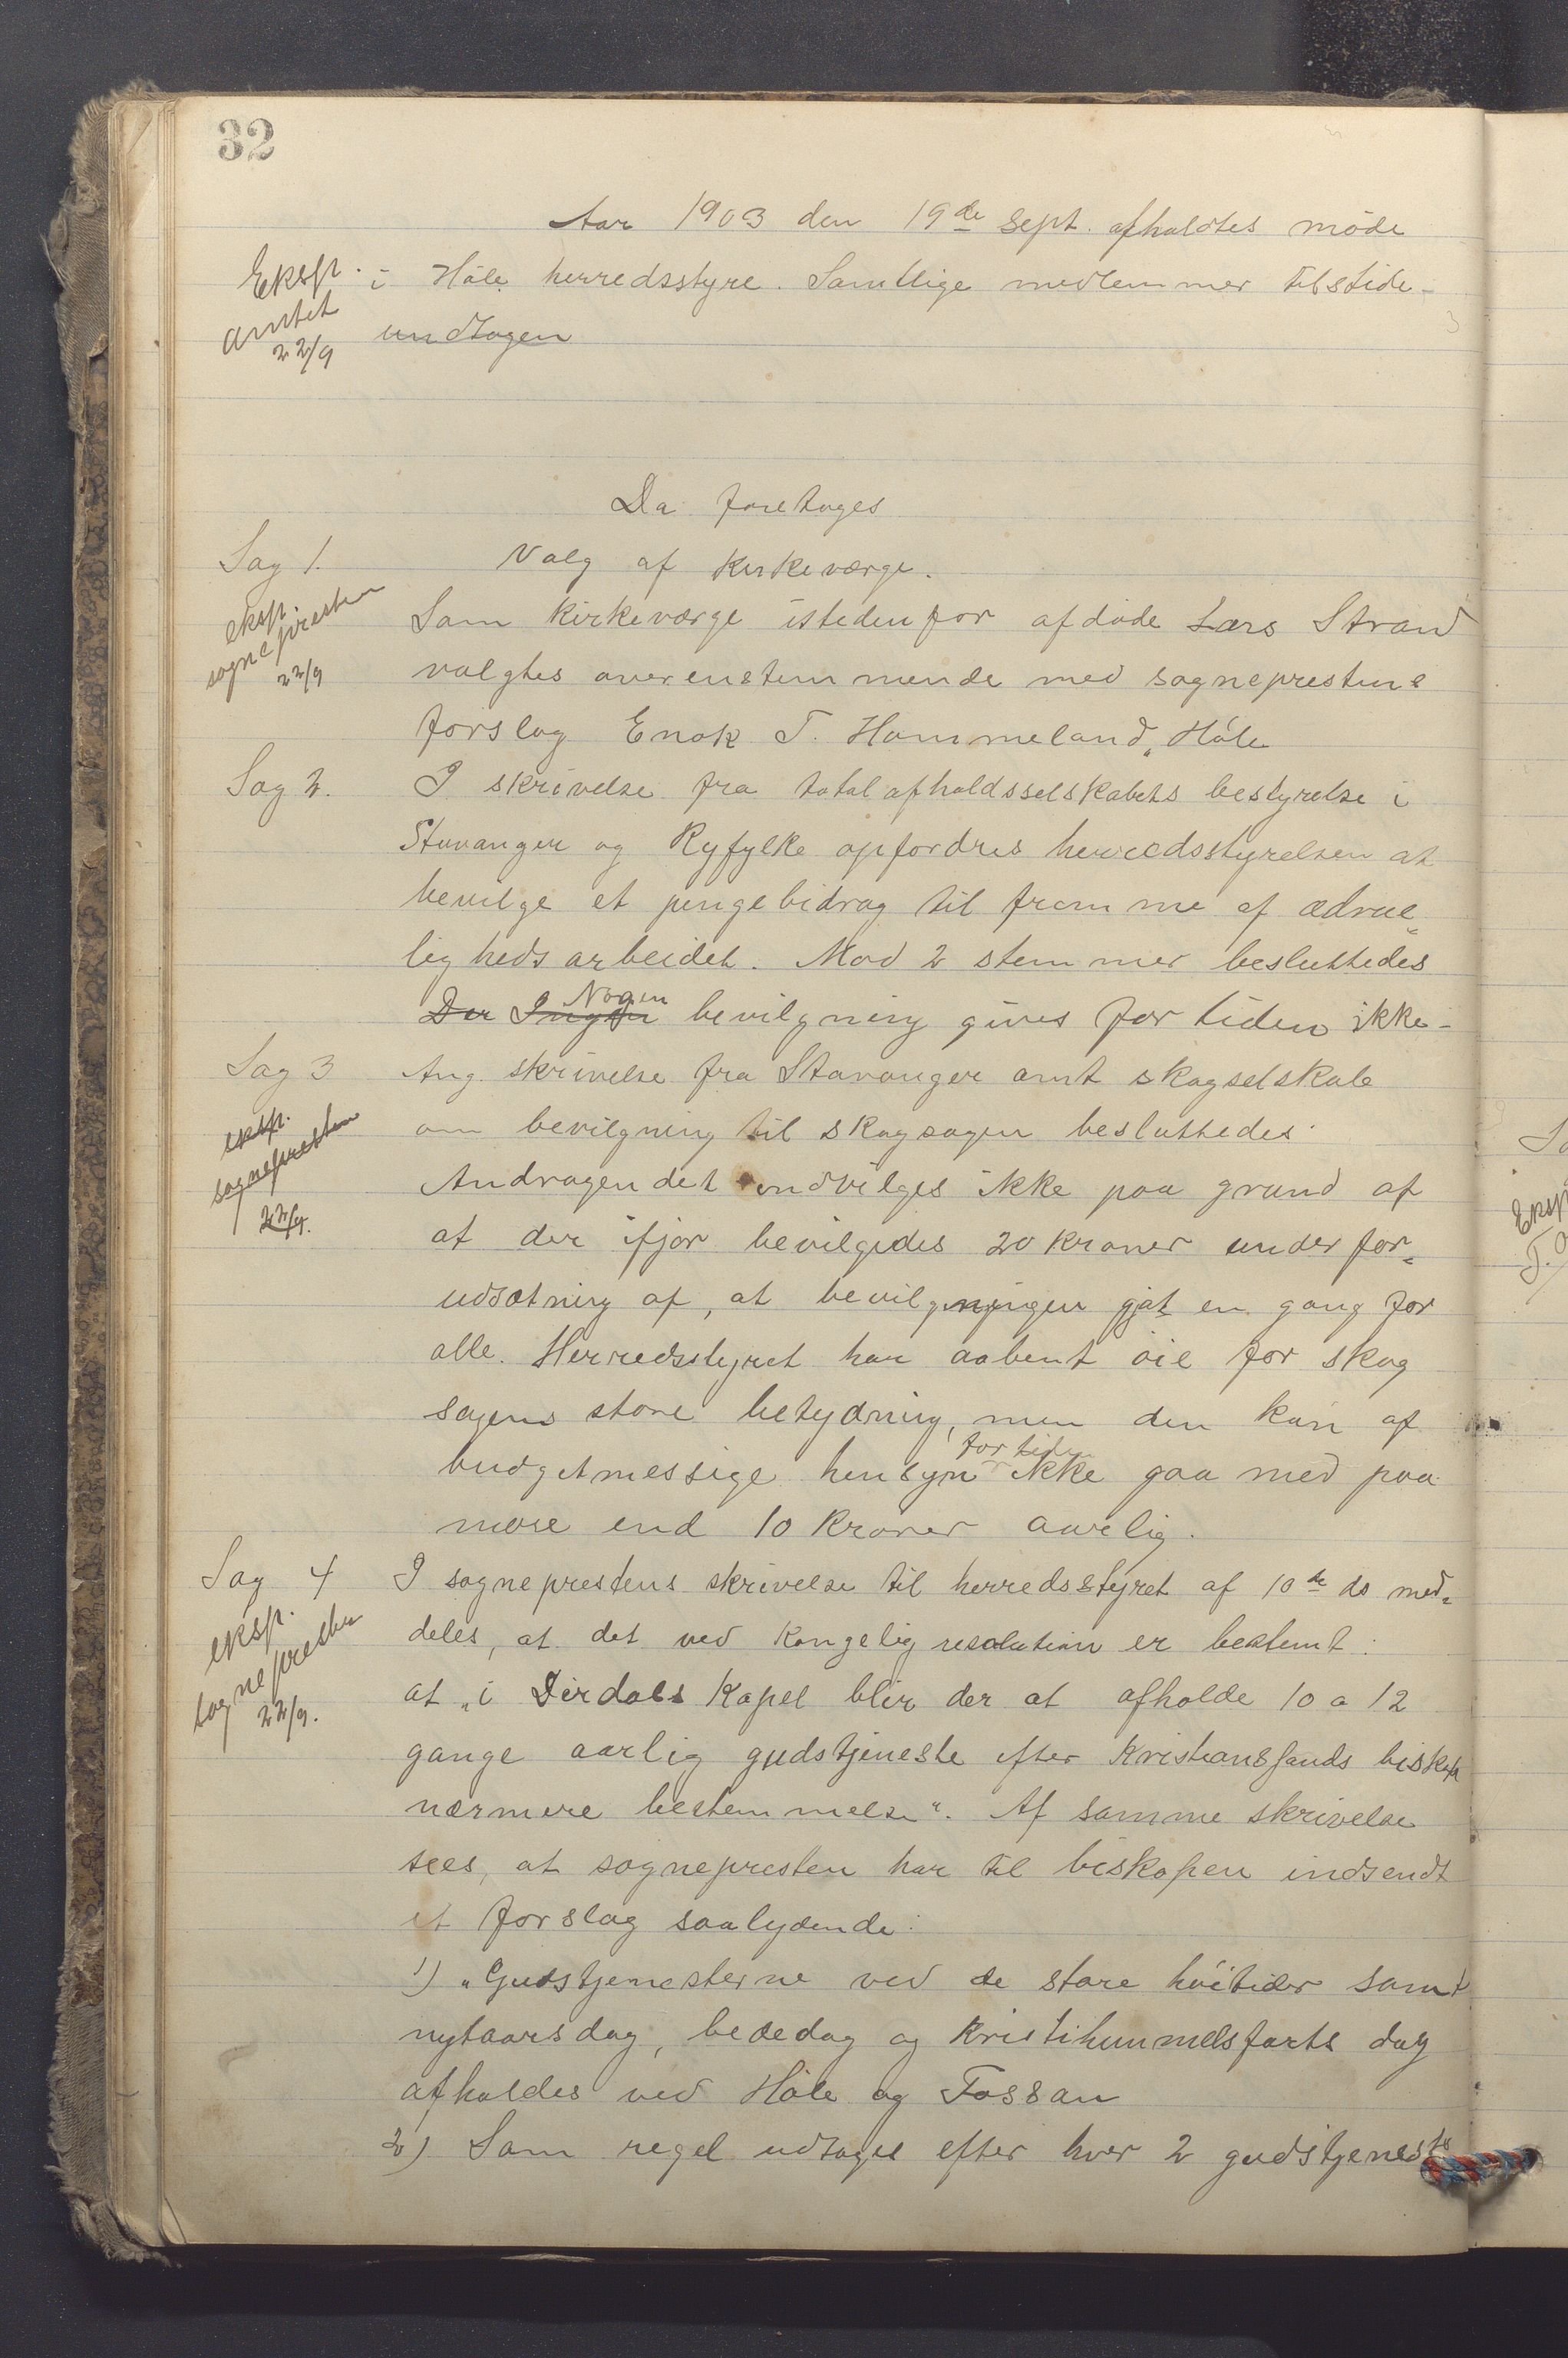 32
Aar 1903 den 19de Sept. afholdtes møde
Eksp.
amtet
22/9
i Høle herredsstyre. Samtlige medlemmer tilstede-
undtagen
Da foretoges
Sag 1.
Valg af kirkeværge.
eksp.
sognepresten
22/9
Som kirkeværge istedenfor afdøde Lars Strand
valgtes overenstemmende med sogneprestens
forslag Enok T. Hommeland, Høle
Sag 2.
I skrivelse fra totalafholdsselskabets bestyrelse i
Stavanger og Ryfylke opfordres herredsstyrelsen at
bevilge et pengebidrag til fremme af ædrue„
lighedsarbeidet. Mod 2 stemmer besluttedes
Der Ingen Nogen bevilgning gives for tiden ikke-
Sag 3
Ang. skrivelse fra Stavanger amt skogselskab
eksp.
sognepresten
22/9.
om bevilgning til skogsagen besluttedes:
Andragendet indvilges ikke paa grund af
at der ifjor bevilgedes 20 kroner under for„
udsætning af, at bevilgningen gjat en gang for
alle. Herredsstyret har aabent øie for skog
sagens store betydning, men den kan af
budgetmessige hensyn for tiden ikke gaa med paa
mere end 10 kroner aarlig.
Sag 4
I sogneprestens skrivelse til herredsstyret af 10de ds med„
eksp.
sognepresten
22/9.
deles, at det ved kongelig resolution er bestemt:
at „i Dirdals kapel blir der at afholde 10 a 12
gange aarlig gudstjeneste efter Kristianssands biskops
nærmere bestemmelse“. Af samme skrivelse
sees, at sognepresten har til biskopen indsendt
et forslag saalydende:
1) „Gudstjenesterne ved de store høitider samt
nytaarsdag, bededag og Kristihimmelsfarts dag
afholdes ved Høle og Fossan
2) Som regel udtages efter hver 2 gudstjeneste